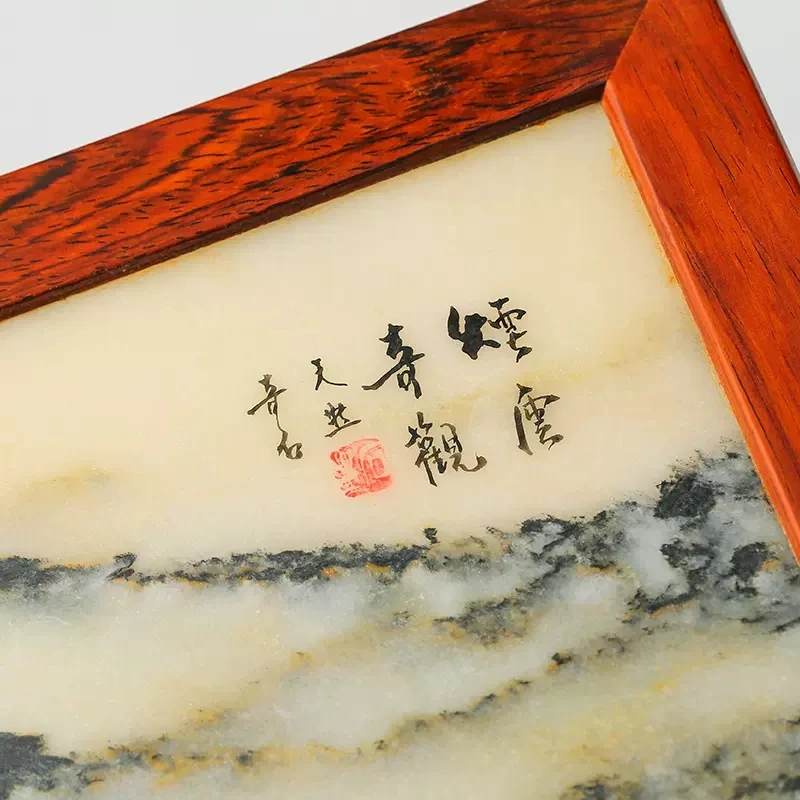 煙雲
奇觀
天然
奇石